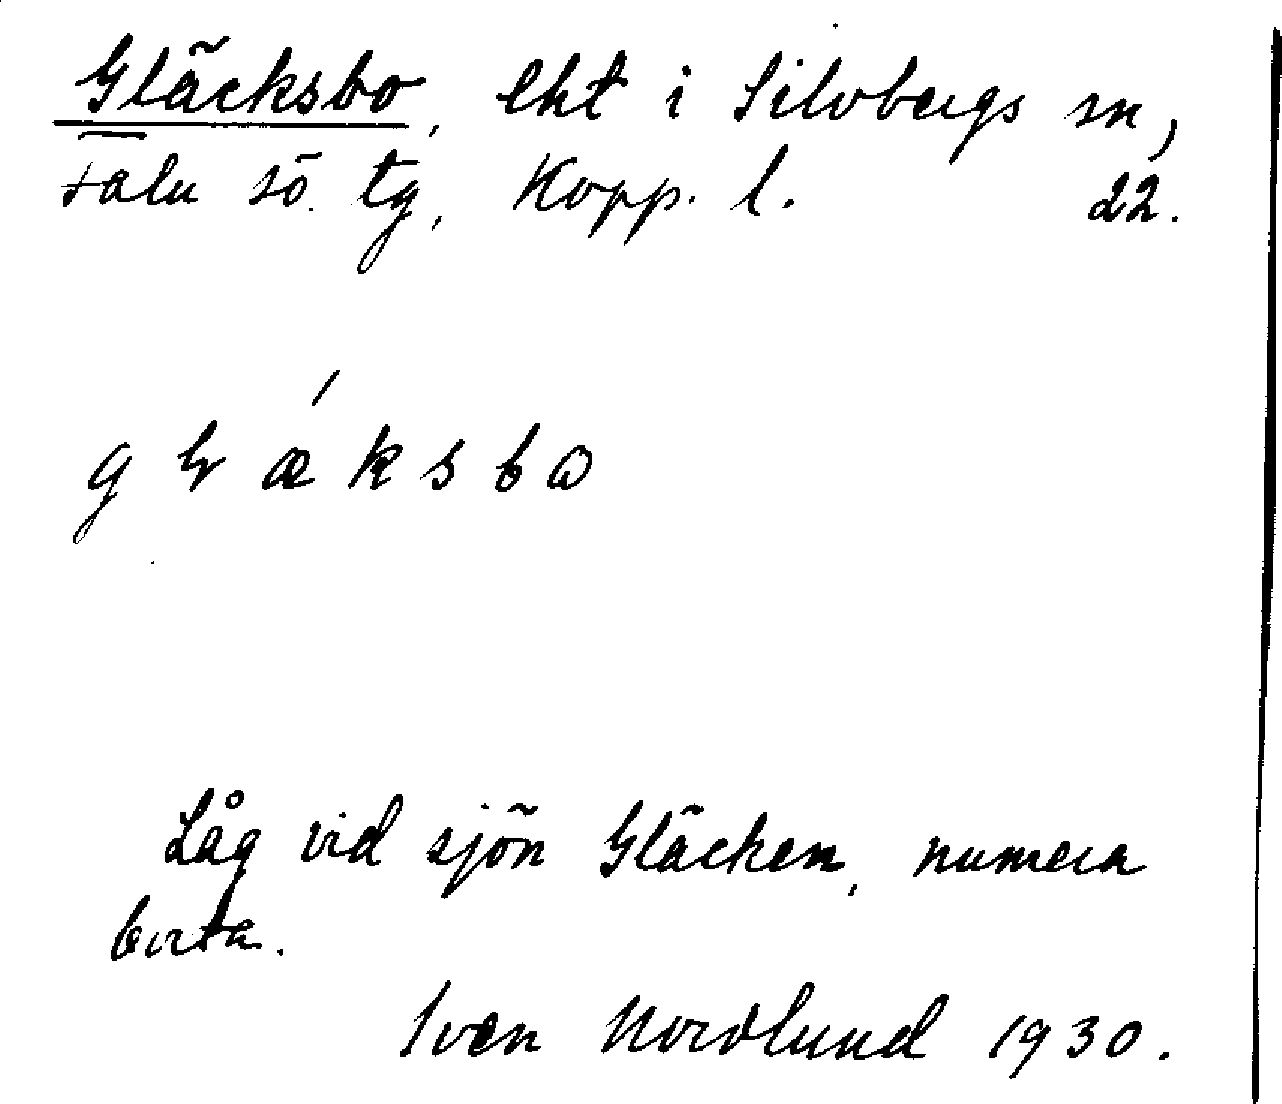 Gläcksbo, lht i Silvbergs sn,
Falu sö. tg, Kopp. l. 22.
g ɬ ǽ k s b ω
Låg vid sjön Gläcken, numera
borta.
Sven Nordlund 1930.